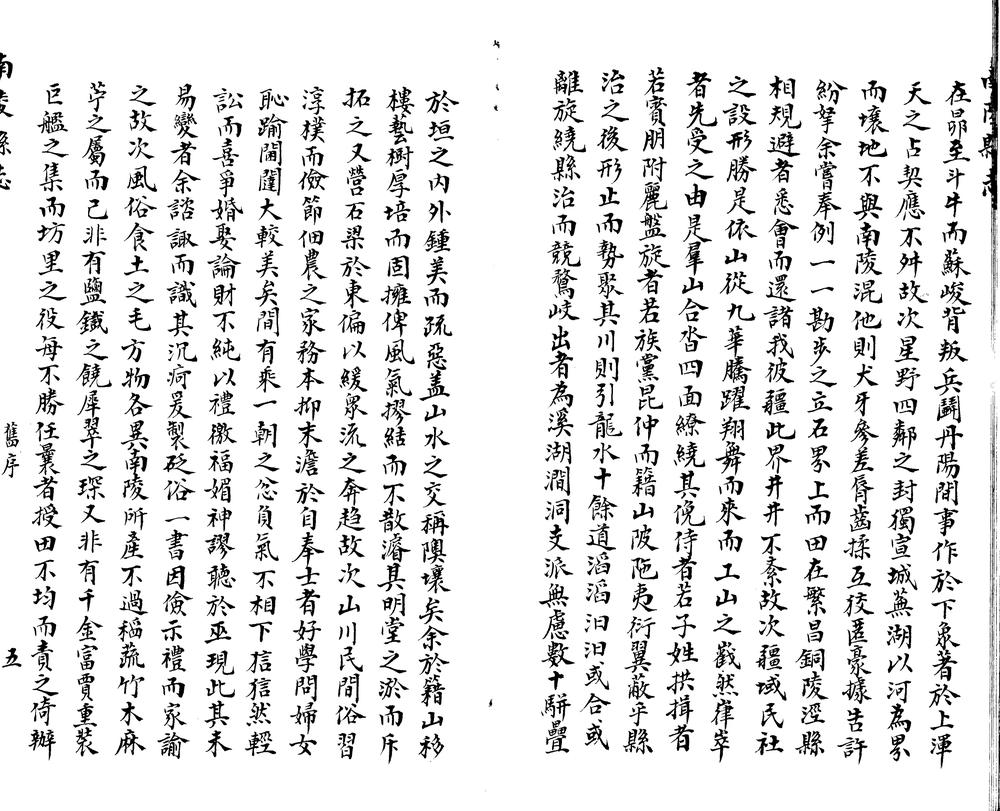 南陵縣志
在昴至斗牛而蘇峻背叛兵鬭丹陽間事作於下象著於上渾
天之占契應不舛故次星野四鄰之封獨宣城蕪湖以河為界
而壤地不與南陵混他則犬牙參差脣齒揉互狡匿豪據告訐
紛拏余嘗奉例一一勘步之立石界上而田在繁昌銅陵涇縣
相規避者悉會而還諸我彼疆此界井井不紊故次疆域民社
之設形勝是依山從九華騰躍翔舞而來而工山之巀然嵂崒
者先受之由是羣山合沓四面繚繞其俛侍者若子姓拱揖者
若賓朋附麗盤旋者若族黨昆仲而籍山陂陁夷衍翼蔽乎縣
治之後形止而勢聚其川則引龍水十餘道滔滔汩汩或合或
離旋繞縣治而競騖岐出者為溪湖澗洞支派無慮數十駢疊
於垣之內外鍾美而疏惡盖山水之交稱隩壤矣余於籍山移
樓藝樹厚培而固擁俾風氣摎結而不散濬其明堂之淤而斥
拓之又營石梁於東偏以緩衆流之奔趋故次山川民間俗習
淳樸而儉節佃農之家務本抑末澹於自奉士者好學問婦女
恥踰閫闥大較美矣間有乘一朝之忿負氣不相下狺狺然輕
訟而喜爭婚娶論財不純以禮徼福媚神謬聽於巫現此其未
易變者余諮諏而識其沉痾爰製砭俗一書因儉示禮而家諭
之故次風俗食土之毛方物各異南陵所產不過稻蔬竹木麻
苧之屬而已非有鹽鐵之饒犀翠之琛又非有千金富賈重裝
巨艦之集而坊里之役每不勝任曩者授田不均而責之倚辦
南陵縣志
舊序
五